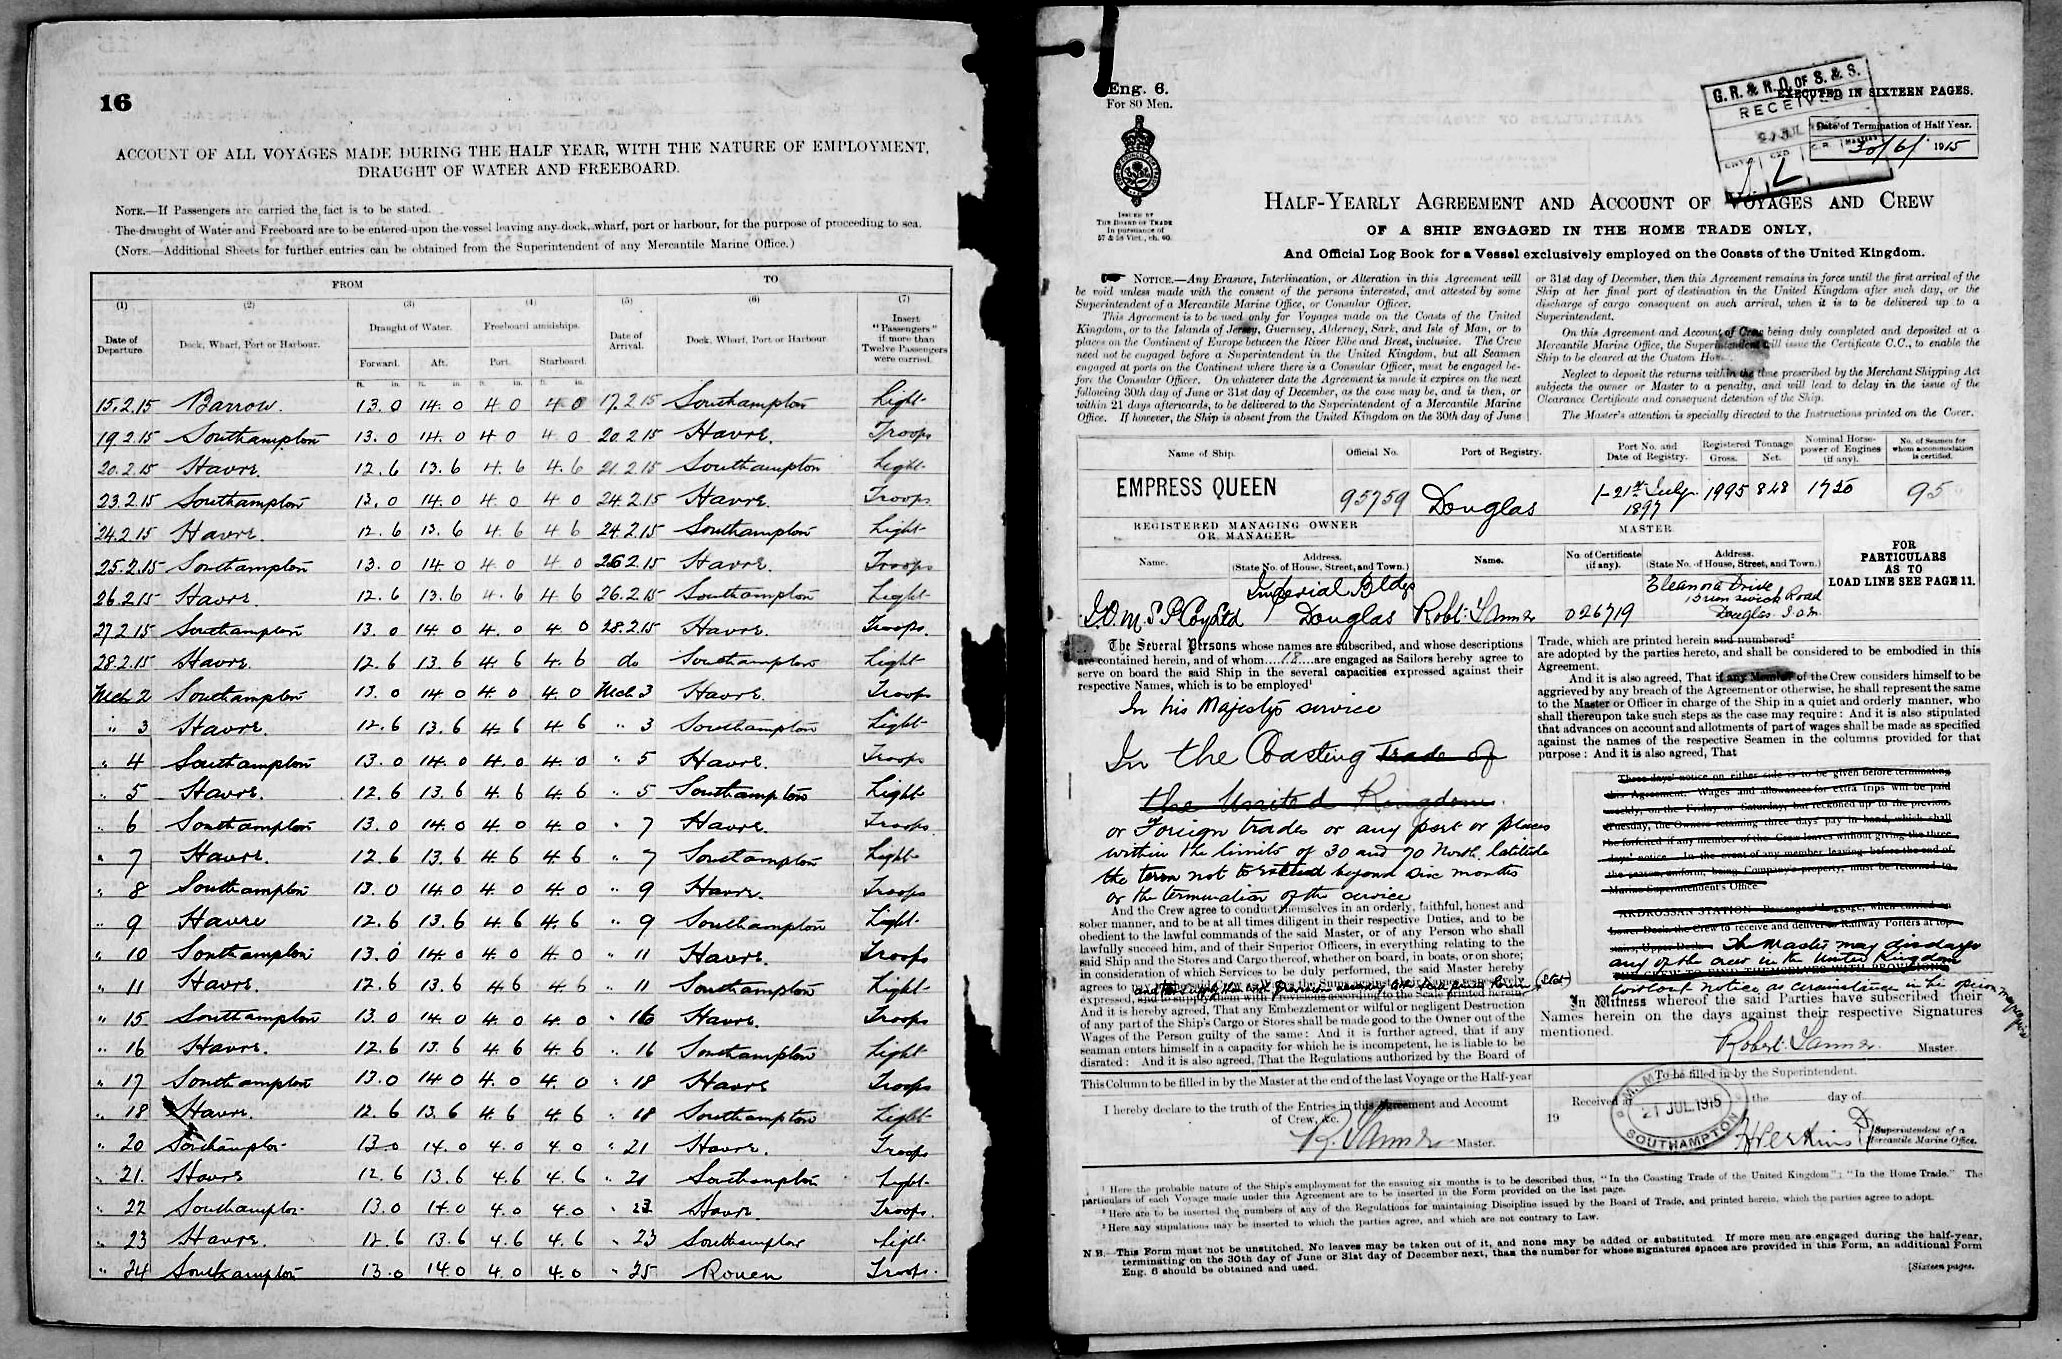 16
ACCOUNT OF ALL VOYAGES MADE DURING THE HALF YEAR, WITH THE NATURE OF EMPLOYMENT,
DRAUGHT OF WATER AND FREEBOARD.
NOTE.—If Passengers are carried the fact is to be stated.
The draught of Water and Freeboard are to be entered upon the vessel leaving any dock, wharf, port or harbour, for the purpose of proceeding to sea.
(NOTE.—Additional Sheets for further entries can be obtained from the Superintendent of any Mercantile Marine Office.)
FROM TO
(1) (2) (3) (4) (5) (6) (7)
Date of Departure. Dock, Wharf, Port or Harbour. Draught of Water. Freeboard amidships. Date of Arrival. Dock, Wharf, Port or Harbour Insert "Passengers" if more than Twelve Passengers were carried.
Forward. Aft. Port. Starboard.
ft. in. ft. in. ft. in. ft. in.
15.2.15 Barrow. 13.0 14.0 4 0 4 0 17.2.15 Southampton Light
19.2.15 Southampton 13.0 14.0 4 0 4 0 20.2.15 Havre. Troops
20.2.15 Havre. 12.6 13.6 4.6 4.6 21.2.15 Southampton Light
23.2.15 Southampton 13.0 14.0 4.0 4 0 24.2.15 Havre. Troops
24.2.15 Havre. 12.6 13.6 4.6 4 6 24.2.15 Southampton Light
25.2.15 Southampton 13.0 14.0 4.0 4 0 26.2.15 Havre. Troops
26.2.15 Havre. 12.6 13.6 4.6 4 6 26.2.15 Southampton Light
27.2.15 Southampton 13.0 14.0 4.0 4.0 28.2.15 Havre. Troops.
28.2.15 Havre. 12.6 13.6 4.6 4.6 do Southampton Light
Mch 2 Southampton 13.0 14.0 4.0 4.0 Mch 3 Havre. Troops
" 3 Havre. 12.6 13.6 4.6 4 6 " 3 Southampton Light
" 4 Southampton 13.0 14.0 4.0 4.0 " 5 Havre. Troops
" 5 Havre. 12.6 13.6 4.6 4.6 " 5 Southampton Light
" 6 Southampton 13.0 14.0 4.0 4.0 " 7 Havre. Troops
" 7 Havre. 12.6 13.6 4.6 4.6 " 7 Southampton Light
" 8 Southampton 13.0 14.0 4.0 4.0 " 9 Havre. Troops
" 9 Havre 12.6 13.6 4.6 4.6 " 9 Southampton Light
" 10 Southampton 13.0 14.0 4.0 4.0 " 11 Havre. Troops
" 11 Havre. 12.6 13.6 4.6 4.6 " 11 Southampton Light
" 15 Southampton 13.0 14.0 4.0 4.0 " 16 Havre. Troops
" 16 Havre. 12.6 13.6 4.6 4.6 " 16 Southampton Light
" 17 Southampton 13.0 14.0 4.0 4.0 " 18 Havre Troops
" 18 Havre. 12.6 13.6 4.6 4.6 " 18 Southampton Light
" 20 Southampton 13.0 14.0 4.0 4.0 " 21 Havre. Troops
" 21. Havre 12.6 13.6 4.6 4.6 " 21 Southampton Light
" 22 Southampton 13.0 14.0 4.0 4.0 " 23 Havre. Troops.
" 23 Havre. 12.6 13.6 4.6 4.6 " 23 Southampton Light
" 24 Southampton 13.0 14.0 4.0 4.0 " 25 Rouen Troops.
Eng. 6.
For 80 Men.
ISSUED BY
THE BOARD OF TRADE
In pursuance of
57 & 58 Vict., ch. 60.
G.R. & R.O. OF S. & S.
RECEIVED
EXECUTED IN SIXTEEN PAGES.
Date of Termination of Half Year.
30/6/ 1915
HALF-YEARLY AGREEMENT AND ACCOUNT OF VOYAGES AND CREW
OF A SHIP ENGAGED IN THE HOME TRADE ONLY,
And Official Log Book for a Vessel exclusively employed on the Coasts of the United Kingdom.
NOTICE.—Any Erasure, Interlineation, or Alteration in this Agreement will
be void unless made with the consent of the persons interested, and attested by some
Superintendent of a Mercantile Marine Office, or Consular Officer.
This Agreement is to be used only for Voyages made on the Coasts of the United
Kingdom, or to the Islands of Jersey, Guernsey, Alderney, Sark, and Isle of Man, or to
places on the Continent of Europe between the River Elbe and Brest, inclusive. The Crew
need not be engaged before a Superintendent in the United Kingdom, but all Seamen
engaged at ports on the Continent where there is a Consular Officer, must be engaged be-
fore the Consular Officer. On whatever date the Agreement is made it expires on the next
following 30th day of June or 31st day of December, as the case may be, and is then, or
within 21 days afterwards, to be delivered to the Superintendent of a Mercantile Marine
Office. If however, the Ship is absent from the United Kingdom on the 30th day of June
or 31st day of December, then this Agreement remains in force until the first arrival of the
Ship at her final port of destination in the United Kingdom after such day, or the
discharge of cargo consequent on such arrival, when it is to be delivered up to a
Superintendent.
On this Agreement and Account of Crew being duly completed and deposited at a
Mercantile Marine Office, the Superintendent will issue the Certificate C.C., to enable the
Ship to be cleared at the Custom House.
Neglect to deposit the returns within the time prescribed by the Merchant Shipping Act
subjects the owner or Master to a penalty, and will lead to delay in the issue of the
Clearance Certificate and consequent detention of the Ship.
The Master's attention is specially directed to the Instructions printed on the Cover.
Name of Ship. Official No. Port of Registry. Port No. and Date of Registry. Registered Tonnage Gross. Net. Nominal Horse-power of Engines (if any). No. of Seamen for whom accommodation is certified.
EMPRESS QUEEN 95759 Douglas 1-21st July 1897 1995 848 1750 95
REGISTERED MANAGING OWNER OR MANAGER. MASTER.
Name. Address. (State No. of House, Street, and Town.) Name. No. of Certificate (if any). Address. (State No. of House, Street, and Town.)
FOR PARTICULARS AS TO LOAD LINE SEE PAGE 11.
I.O.M.S.P.Coy Ltd Imperial Bldgs Douglas Robt. 026719 Eleanora Drive Brunswick Road Douglas I.O.M.
The Several Persons whose names are subscribed, and whose descriptions
are contained herein, and of whom....18....are engaged as Sailors hereby agree to
serve on board the said Ship in the several capacities expressed against their
respective Names, which is to be employed¹
In his Majesty's service
In the Coasting Trade of
the United Kingdom.
or Foreign trades or any port or places
within the limits of 30 and 70 North latitude
the term not to extend beyond six months
or the termination of the service
And the Crew agree to conduct themselves in an orderly, faithful, honest and
sober manner, and to be at all times diligent in their respective Duties, and to be
obedient to the lawful commands of the said Master, or of any Person who shall
lawfully succeed him, and of their Superior Officers, in everything relating to the
said Ship and the Stores and Cargo thereof, whether on board, in boats, or on shore;
in consideration of which Services to be duly performed, the said Master hereby
expressed, and to supply them with provisions according to the Scale printed herein.
And it is hereby agreed, That any Embezzlement or wilful or negligent Destruction
of any part of the Ship's Cargo or Stores shall be made good to the Owner out of the
Wages of the Person guilty of the same: And it is further agreed, that if any
seaman enters himself in a capacity for which he is incompetent, he is liable to be
disrated: And it is also agreed, That the Regulations authorized by the Board of
Trade, which are printed herein and numbered²
are adopted by the parties hereto, and shall be considered to be embodied in this
Agreement.
And it is also agreed, That if any Member of the Crew considers himself to be
aggrieved by any breach of the Agreement or otherwise, he shall represent the same
to the Master or Officer in charge of the Ship in a quiet and orderly manner, who
shall thereupon take such steps as the case may require: And it is also stipulated
that advances on account and allotments of part of wages shall be made as specified
against the names of the respective Seamen in the columns provided for that
purpose: And it is also agreed, That
Three days' notice on either side is to be given before terminating
this Agreement. Wages and allowances for extra trips will be paid
weekly, on the Friday or Saturday, but reckoned up to the previous
Tuesday, the Owners retaining three days' pay in hand, which shall
be forfeited if any member of the Crew leaves without giving the three
days' notice. In the event of any member leaving before the end of
the season, uniform, being Company's property, must be returned to
Marine Superintendent's Office.
ARDROSSAN STATION—Passengers' Luggage, when carried on
Lower Deck, the Crew to receive and deliver to Railway Porters at top
stairs, Upper Deck. The Master may discharge
any of the crew in the United Kingdom
THE CREW TO FIND THEMSELVES WITH PROVISIONS
without notice as circumstance in his opinion may require
In Witness whereof the said Parties have subscribed their
Names herein on the days against their respective Signatures
mentioned.
Robert Master.
This Column to be filled in by the Master at the end of the last Voyage or the Half-year
I hereby declare to the truth of the Entries in this Agreement and Account
of Crew, &c.
Master.
To be filled in by the Superintendent.
Received at the day of
19
21 JUL 1915
SOUTHAMPTON
H Perkins
Superintendent of a
Mercantile Marine Office.
¹ Here the probable nature of the Ship's employment for the ensuing six months is to be described thus, "In the Coasting Trade of the United Kingdom"; "In the Home Trade." The
particulars of each Voyage made under this Agreement are to be inserted in the Form provided on the last page.
² Here are to be inserted the numbers of any of the Regulations for maintaining Discipline issued by the Board of Trade, and printed herein, which the parties agree to adopt.
³ Here any stipulations may be inserted to which the parties agree, and which are not contrary to Law.
N.B.—This Form must not be unstitched. No leaves may be taken out of it, and none may be added or substituted. If more men are engaged during the half-year,
terminating on the 30th day of June or 31st day of December next, than the number for whose signatures spaces are provided in this Form, an additional Form
Eng. 6 should be obtained and used.
[Sixteen pages.